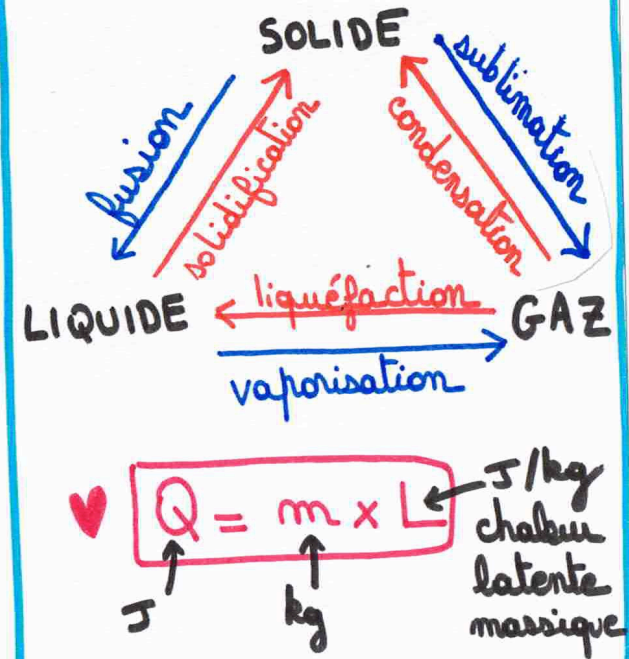 SOLIDE
fusion
solidification
condensation
sublimation
LIQUIDE
liquéfaction
GAZ
vaporisation
Q = m x L
J
kg
J/kg
chaleur
latente
massique